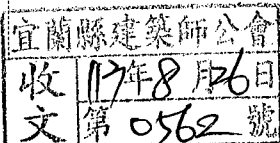 宜蘭縣建築師公會
收文 117年8月26日
第0562號